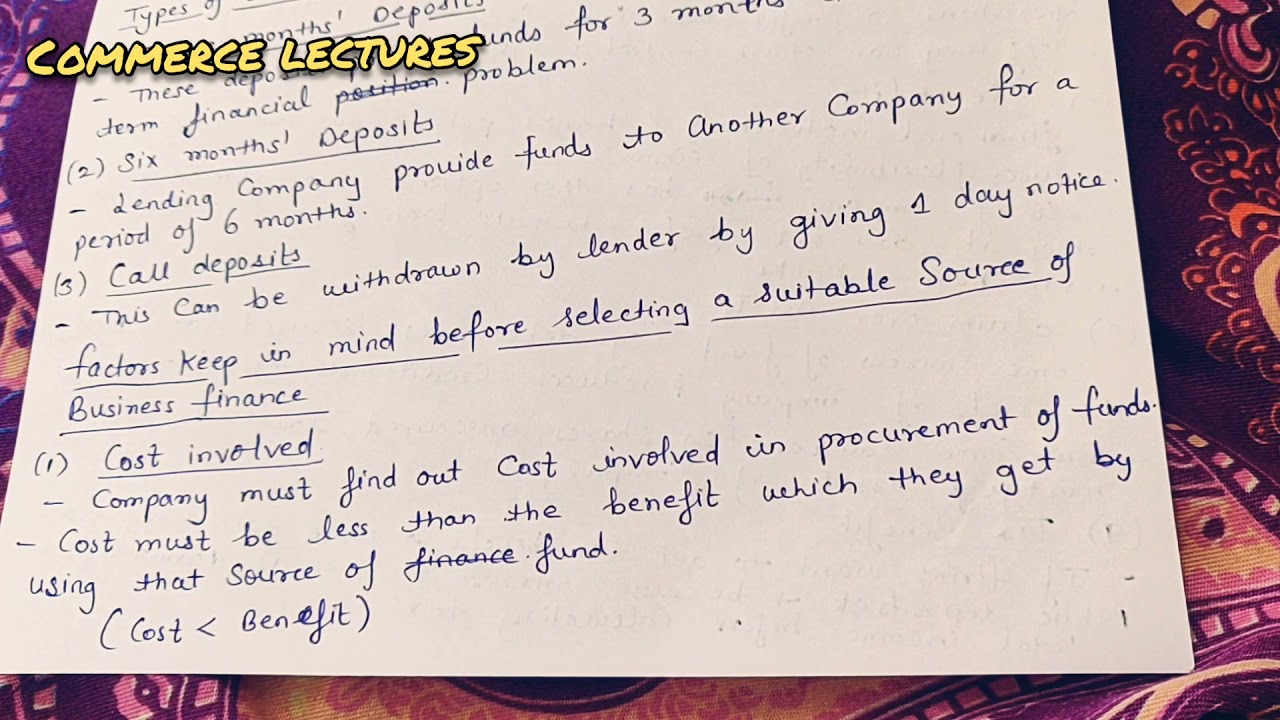 Types of
months' Deposits
COMMERCE LECTURES
- These funds for 3 months
term financial position. problem.
(2) Six months' Deposits
- Lending Company provide funds to another Company for a
period of 6 months.
(3) Call deposits
- This Can be withdrawn by lender by giving 1 day notice.
factors keep in mind before selecting a suitable Source of
Business finance
(1) Cost involved
- Company must find out Cost involved in procurement of funds.
- Cost must be less than the benefit which they get by
using that Source of finance. fund.
(Cost < Benefit)